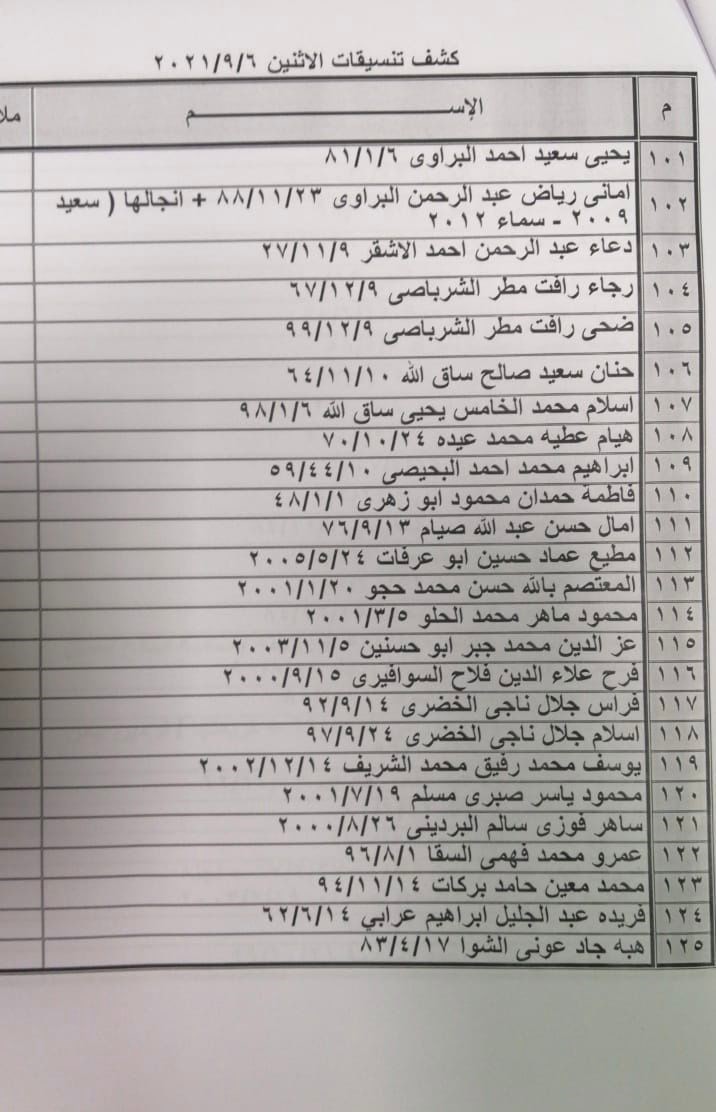 كشف تنسيقات الاثنين ٢٠٢١/٩/٦
م الإســـــــــم ملا
١٠١ يحيى سعيد احمد البراوى ٨١/١/٦
١٠٢ امانى رياض عبد الرحمن البراوى ٨٨/١١/٢٣ + انجالها ( سعيد
٢٠٠٩ - سماء ٢٠١٢
١٠٣ دعاء عبد الرحمن احمد الاشقر ٢٧/١١/٩
١٠٤ رجاء رافت مطر الشرباصى ٦٧/١٢/٩
١٠٥ ضحى رافت مطر الشرباصى ٩٩/١٢/٩
١٠٦ حنان سعيد صالح ساق الله ٦٤/١١/١٠
١٠٧ اسلام محمد الخامس يحيى ساق الله ٩٨/١/٦
١٠٨ هيام عطيه محمد عيده ٧٠/١٠/٢٤
١٠٩ ابراهيم محمد احمد البحيصى ٥٩/٤٤/١٠
١١٠ فاطمة حمدان محمود ابو زهرى ٤٨/١/١
١١١ امال حسن عبد الله صيام ٧٦/٩/١٣
١١٢ مطيع عماد حسين ابو عرفات ٢٠٠٥/٥/٢٤
١١٣ المعتصم بالله حسن محمد حجو ٢٠٠١/١/٢٠
١١٤ محمود ماهر محمد الحلو ٢٠٠١/٣/٥
١١٥ عز الدين محمد جبر ابو حسنين ٢٠٠٣/١١/٥
١١٦ فرح علاء الدين فلاح السوافيرى ٢٠٠٠/٩/١٥
١١٧ فراس جلال ناجى الخضرى ٩٢/٩/١٤
١١٨ اسلام جلال ناجى الخضرى ٩٧/٩/٢٤
١١٩ يوسف محمد رفيق محمد الشريف ٢٠٠٢/١٢/١٤
١٢٠ محمود ياسر صبرى مسلم ٢٠٠١/٧/١٩
١٢١ ساهر فوزى سالم البردينى ٢٠٠٠/٨/٢٦
١٢٢ عمرو محمد فهمى السقا ٩٦/٨/١
١٢٣ محمد معين حامد بركات ٩٤/١١/١٤
١٢٤ فريده عبد الجليل ابراهيم عرابي ٦٢/٦/١٤
١٢٥ هبه جاد عونى الشوا ٨٣/٤/١٧